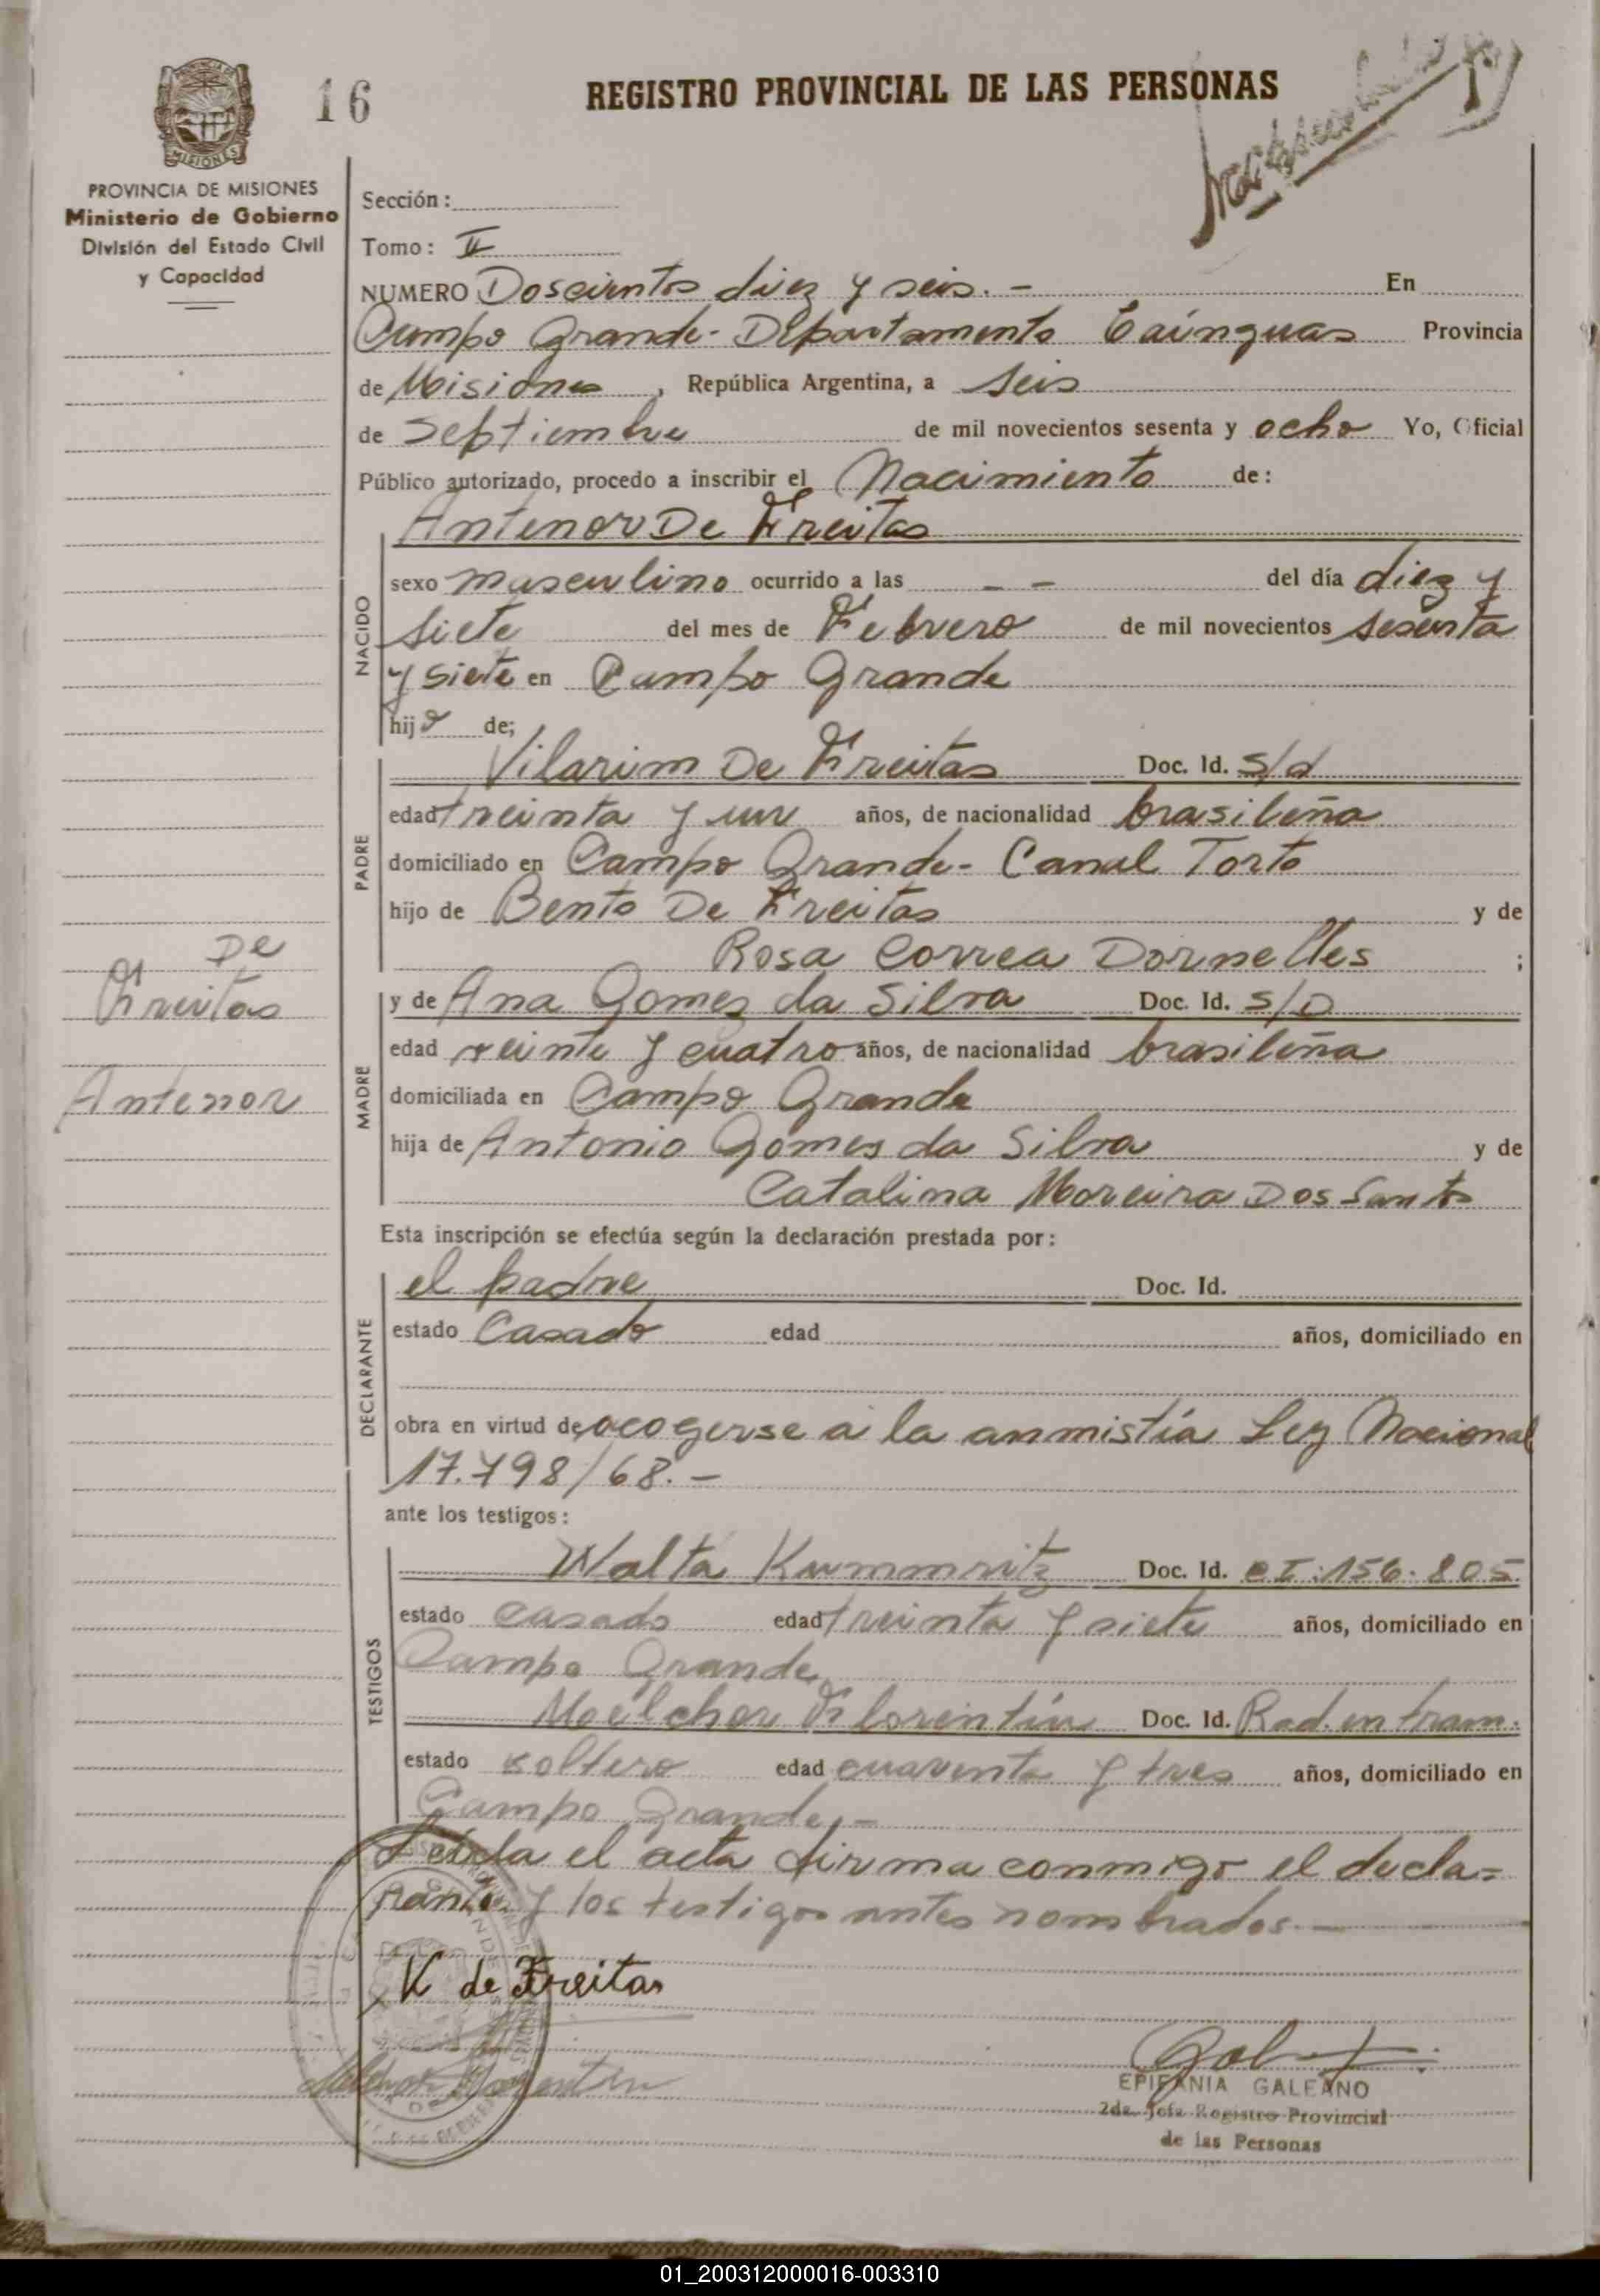 16
REGISTRO PROVINCIAL DE LAS PERSONAS
MISIONES
PROVINCIA DE MISIONES
Ministerio de Gobierno
División del Estado Civil
y Capacidad
Sección:
Tomo: II
NUMERO Doscientos diez y seis. - En
Campo Grande - Departamento Cainguas Provincia
de Misiones, República Argentina, a seis
de Septiembre de mil novecientos sesenta y ocho Yo, Oficial
Público autorizado, procedo a inscribir el Nacimiento de:
Antenor De Freitas
NACIDO
sexo masculino ocurrido a las - - del día diez y
siete del mes de Febrero de mil novecientos sesenta
y siete en Campo Grande
hijo de;
PADRE
Vilarim De Freitas Doc. Id. s/d
edad treinta y un años, de nacionalidad brasileña
domiciliado en Campo Grande - Canal Torto
hijo de Bento De Freitas y de
Rosa Correa Dornelles ;
De
Freitas
Antenor
MADRE
y de Ana Gomez da Silva Doc. Id. S/D
edad veinte y cuatro años, de nacionalidad brasileña
domiciliada en Campo Grande
hija de Antonio Gomes da Silva y de
Catalina Moreira Dos Santos
Esta inscripción se efectúa según la declaración prestada por:
DECLARANTE
el padre Doc. Id.
estado Casado edad años, domiciliado en
obra en virtud de acogerse a la anmistía Ley Nacional
17.798/68. -
ante los testigos:
TESTIGOS
Walta Kummritz Doc. Id. CI: 156.805
estado casado edad treinta y siete años, domiciliado en
Campo Grande
Melchor Florentín Doc. Id. Rad. en tram.
estado soltero edad cuarenta y tres años, domiciliado en
Campo Grande. -
Leída el acta firma conmigo el decla=
rante y los testigos antes nombrados. -
V de Freitas
Melchor Florentin
EPIFANIA GALEANO
2da. Jefa Registro Provincial
de las Personas
01_200312000016-003310